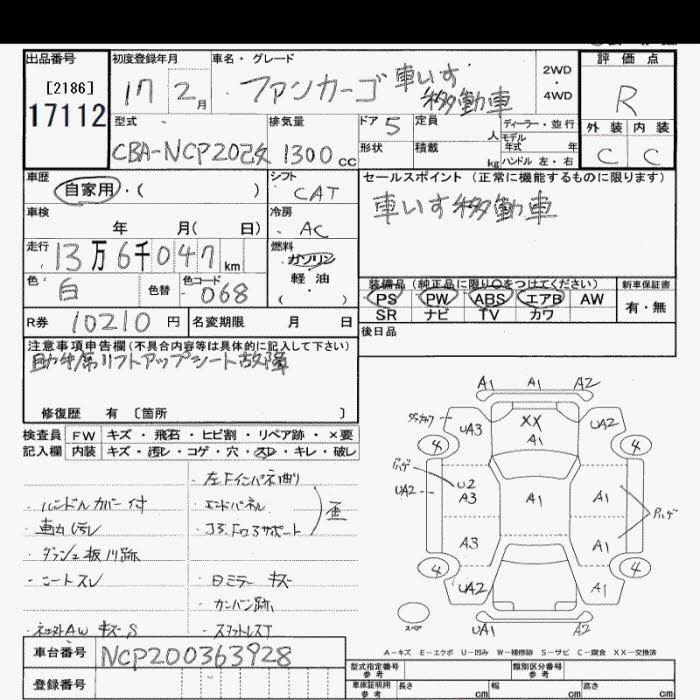 出品番号
[2186]
17112
初度登録年月
17 2月
車名・グレード
ファンカーゴ 車いす移動車
2WD
4WD
評価点
R
外装 内装
C C
型式
CBA-NCP20改
排気量
1300cc
ドア 5
形状
定員 人
積載 kg
ディーラー・並行
モデル
年式 年
ハンドル 左・右
車歴
自家用・( )
シフト
CAT
車検
年 月( 日)
冷房
AC
走行
13万6千047km
燃料
ガソリン
軽油
( ・ )
色
白
色替
色コード
068
R券 10210円
名変期限 月 日
セールスポイント(正常に機能するものに限ります)
車いす移動車
装備品(純正品に限り○をつけてください)
PS PW ABS エアB AW
SR ナビ TV カワ
新車保証書
有・無
後日品
注意事項申告欄(不具合内容等は具体的に記入して下さい)
助手席リフトアップシート故障
修復歴 有 〔箇所 〕
検査員 FW キズ・飛石・ヒビ割・リペア跡・×要
記入欄 内装 キズ・汚レ・コゲ・穴・スレ・キレ・破レ
・ハンドルカバー付
・車内汚レ
・ダッシュ板 跡
・シートスレ
・ AW キズS
・左Fインパネ曲り
・エンドパネル
・コアサポート
歪
・日ミラー キズ
・カンバン跡
・スタットレスT
A1 A1 A2
UA3 XX A1 UA2
4 4
ハゲ
UA2 U2 A3 A1 A1 ハゲ
A3 A1
4 4
UA2 A1
スペア
UA1 A2
A-キズ E-エクボ U-凹み W-補修跡 S-サビ C-腐食 XX-交換済
車台番号 NCP200363928
登録番号
型式指定番号
参考
類別区分番号
参考
車庫証明用
参考
長さ cm
幅 cm
高さ cm